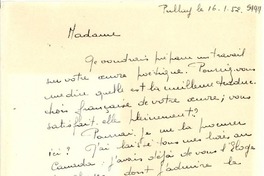 Pully le 16.1.52.
Madame
Je voudrais préparer un travail
sur votre œuvre poétique. Pourriez-vous
me dire quelle est la meilleure traduc-
tion française de votre œuvre; vous
satisfait-elle pleinement?
Pourrai-je me la procurer
ici? J'ai laissé tous mes livres au
Canada: j'avais déjà de vous
dont j'admire la